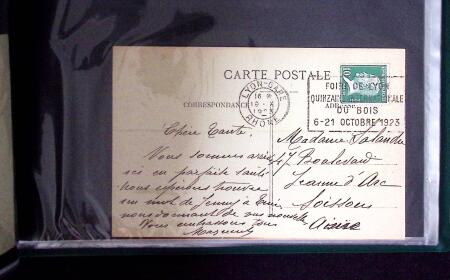 CARTE POSTALE
CORRESPONDANCE
ADRESSE
LYON-GARE
16
19 - X
1923
RHONE
FOIRE DE LYON
QUINZAINE NATIONALE
DU BOIS
6-21 OCTOBRE 1923
Chère Tante.
Vous sommes arrivés
ici en parfaite santé
nous espérons trouver
un mot de Jenny à
nous donnant de vos nouvelles
Nous embrassons tous
Madame
47 Boulevard
Jeanne d'Arc
Soissons
Aisne